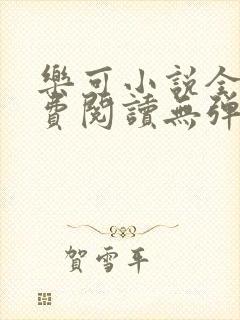 樂可小說全
費閱讀無彈
賀雪平